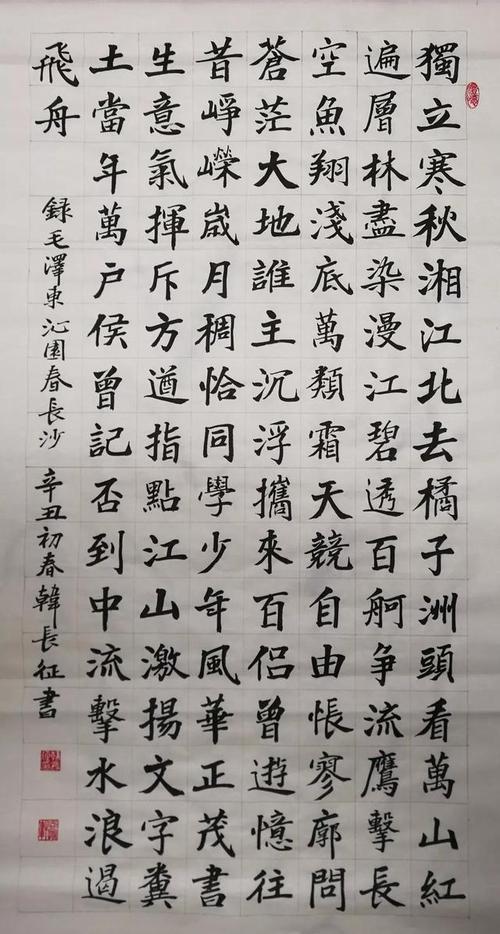 獨立寒秋湘江北去橘子洲頭看萬山紅
遍層林盡染漫江碧透百舸争流鷹擊長
空魚翔淺底萬類霜天競自由悵寥廓問
蒼茫大地誰主沉浮攜來百侣曾遊憶往
昔崢嶸嵗月稠恰同學少年風華正茂書
生意氣揮斥方遒指點江山激揚文字糞
土當年萬户侯曾記否到中流擊水浪遏
飛舟
録毛澤東沁園春長沙 辛丑初春韓長征書